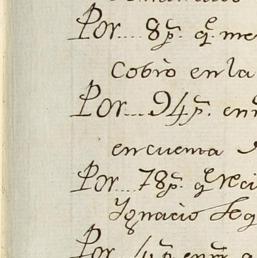 Por... 8p.s q.e me
Cobro en la
Por... 94p.s en
en cuenta
Por... 78p.s q.e reci
Ygnacio Seg
Por... 4p.s